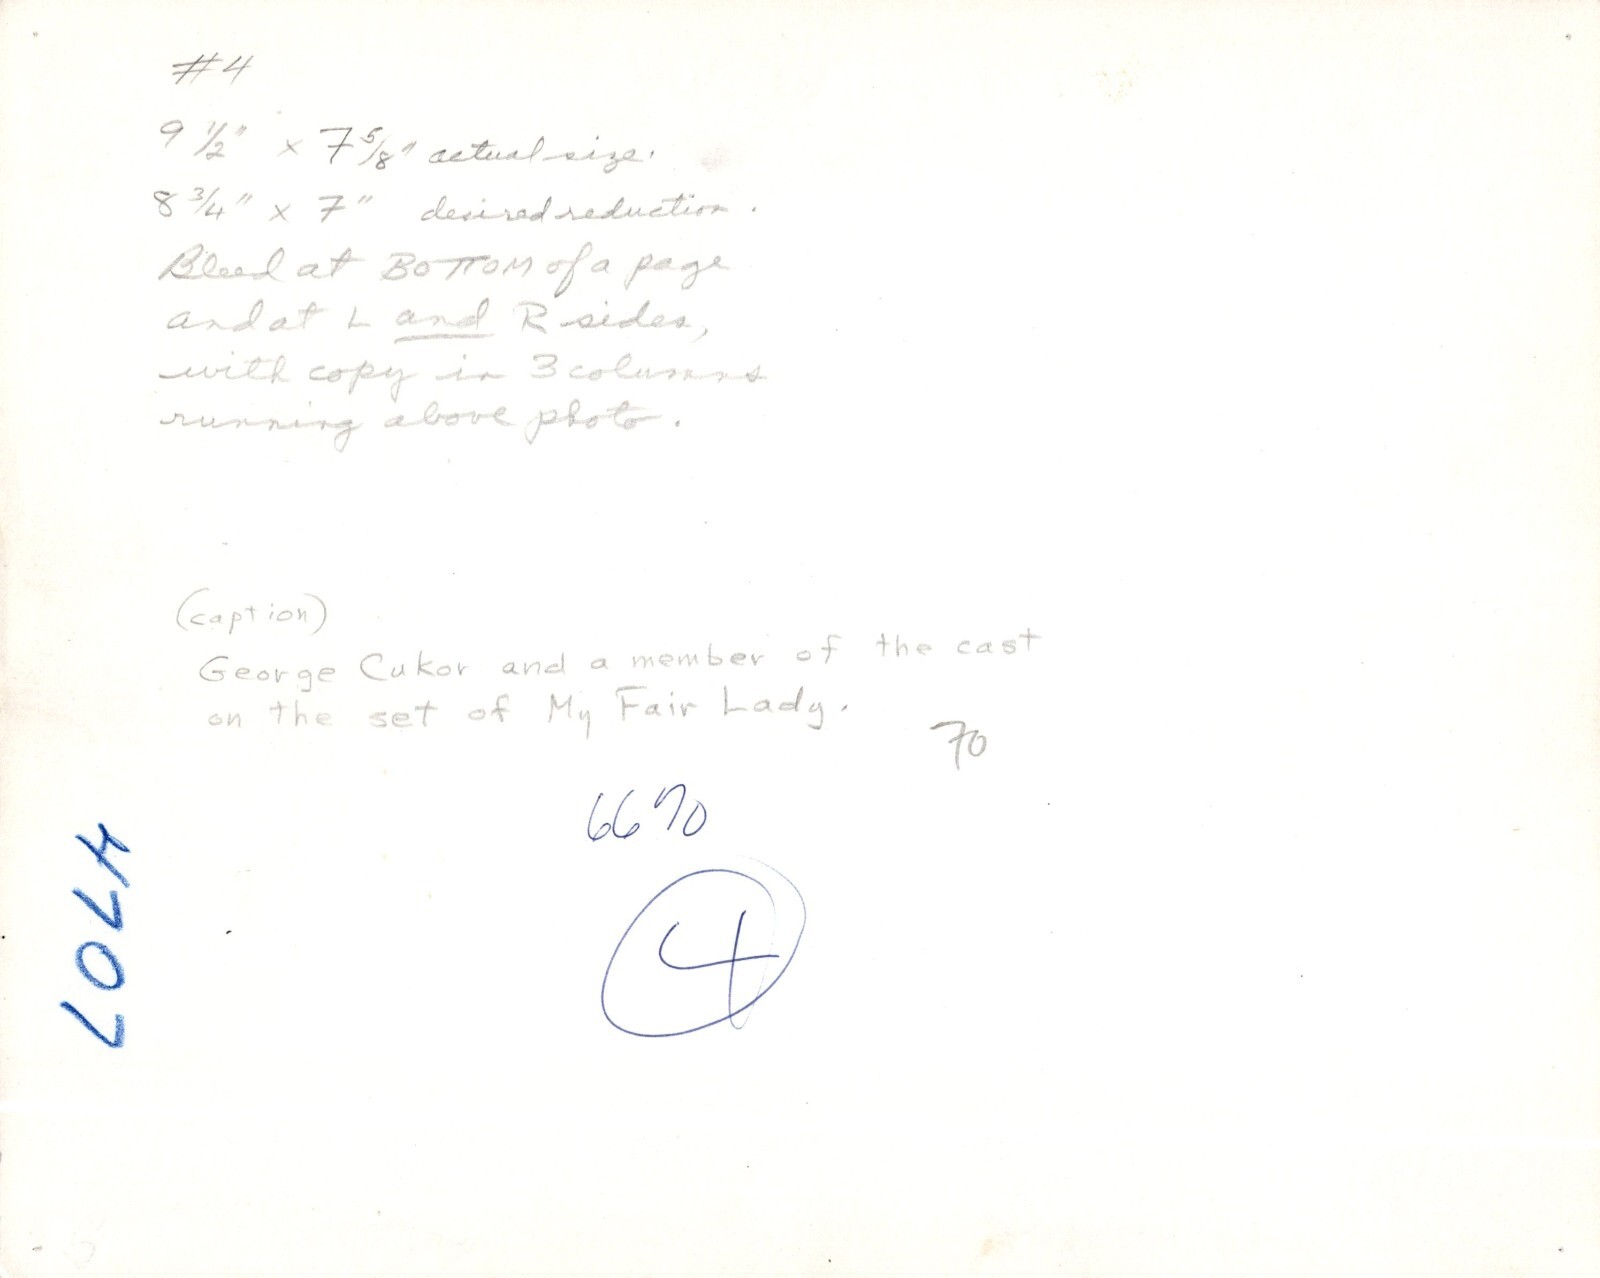 #4
9 1/2" x 7 5/8" actual size.
8 3/4" x 7" desired reduction.
Bleed at BOTTOM of a page
and at L and R sides,
with copy in 3 columns
running above photo.
(caption)
George Cukor and a member of the cast
on the set of My Fair Lady.
70
6670
4
4707